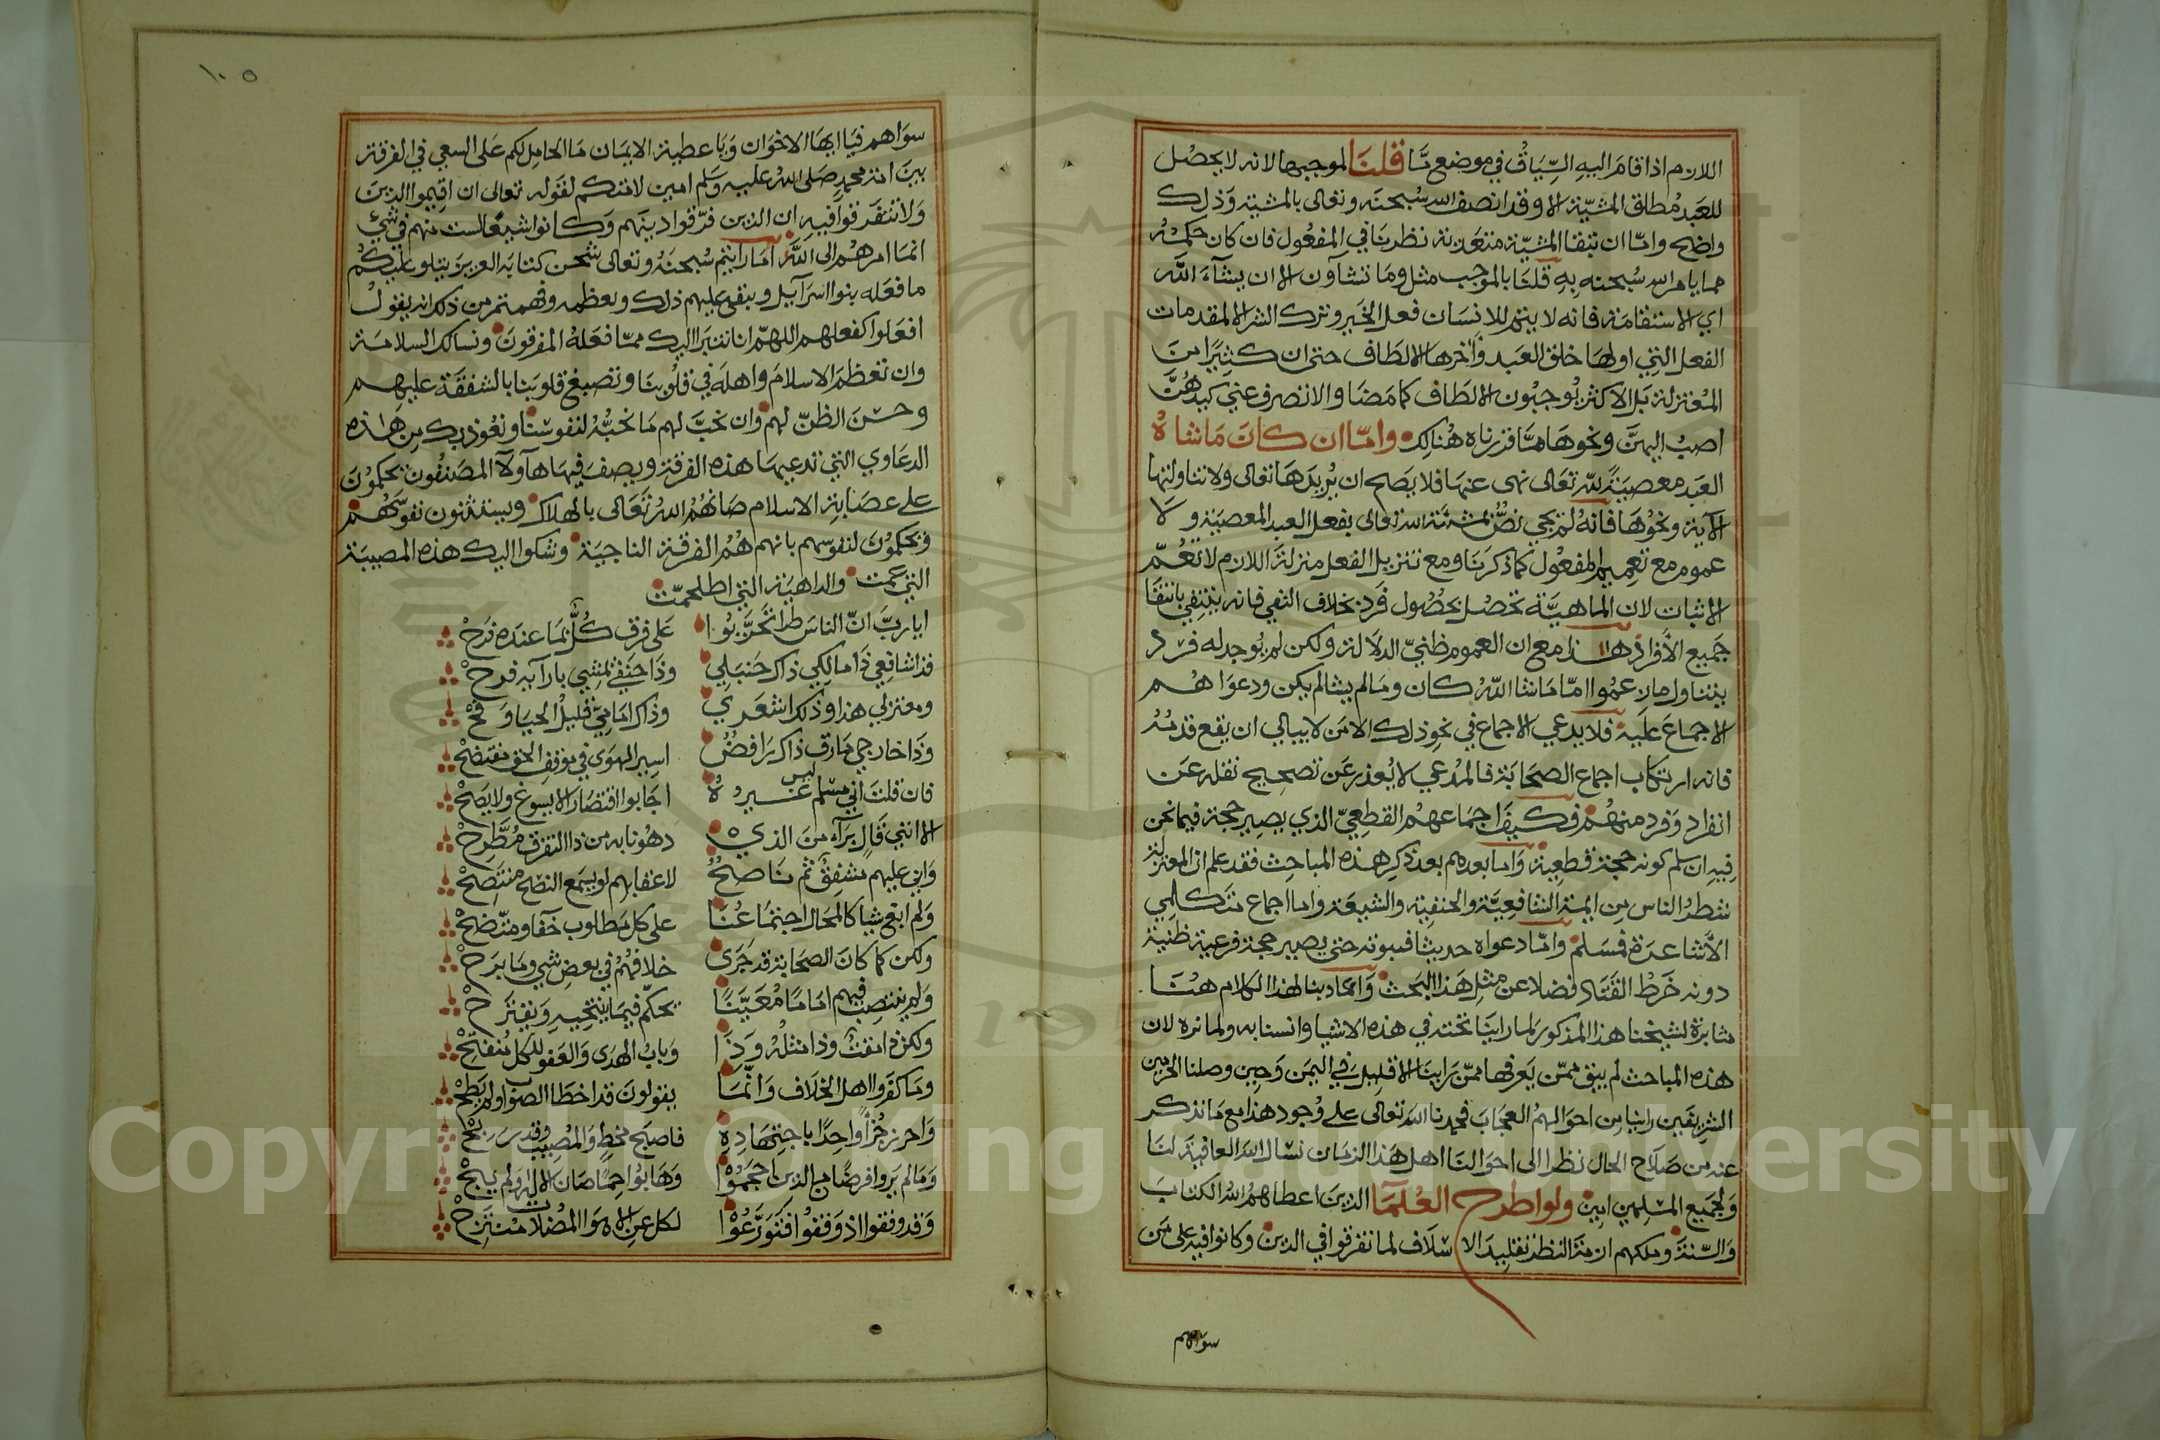 اللازم اذا قام اليه السياق في موضع ما قلنا لموجبها لانه لا يحصل
للعبد مطلق المشيّة الا وقد اتصف الله سبحنه وتعالى بالمشية وذلك
واضح واما ان بتقا المشيّة متعدية نظرنا في المفعول فان كان حكمه
مما يامر الله سبحنه به قلنا بالموجب مثل وما تشآون الا ان يشآء الله
اي الاستقامة فانه لا يتم للانسان فعل الخير وترك الشر الا بمقدمات
الفعل التي اولها خلق العبد وآخرها الالطاف حتى ان كثيرًا من
المعتزلة بل الاكثر يوجبون الالطاف كما مضا والا تصرف عني كيدهنّ
اصب اليهنّ ونحوها مما قررناه هنالك واما ان كان ما شاه
العبد معصيةً لله تعالى نهى عنها فلا يصح ان يريدها تعالى ولا تتناولها
الآية ونحوها فانه لم يجي نصٌّ بمشئة الله تعالى بفعل العبد المعصية ولا
عموم مع تعميم المفعول كما ذكرنا ومع تنزيل الفعل منزلة اللازم لا تعمّ
الاثبات لان الماهيّة تحصل بحصول فرد بخلاف النفي فانه ينتفي بانتفا
جميع الأفراد هذا مع ان العموم ظنيّ الدلالة ولكن لم يوجد له فرد
يتناول ما زعموا امّا ما شا الله كان وما لم يشا لم يكن ودعواهم
الاجماع عليه فلا يدعي الاجماع في نحو ذلك الا من لا يبالي ان يقع قدمه
فانه ارتكاب اجماع الصحابة فالمدعي لا يعذر عن تصحيح نقله عن
انفراد وفرد منهم فكيف اجماعهم القطعيّ الذي يصير حجة فيما نحن
فيه ان سلم كونه حجة قطعية واما بعدهم بعد ذكر هذه المباحث فقد علم ان المعتزلة
شطر الناس من ايمة الشافعيّة والحنفية والشيعة واما اجماع متكلمي
الأشاعرة فمسلم وامّا دعواه حديثا فثبوته حتى يصير حجة فرعية ظنية
دونه خرط القتاد فضلا عن مثل هذا البحث وانما دبنا لهذا الكلام هنا
مثابرة لشيخنا هذا المذكور لما راينا تحته في هذه الاشيا وانسنا به ولما نره لان
هذه المباحث لم يبق ممّن يعرفها ممّن راينا الا قليل في اليمن وحين وصلنا الحرمين
الشريفين راينا من احوالهم العجاب فحمدنا الله تعالى على وجود هذا مع ما نذكر
عنه من صلاح الحال نظرا الى احوالنا اهل هذا الزمان نسال الله العافية لنا
ولجميع المسلمين امين ولو اطرح العلمآ الذين اعطاهم الله الكتاب
والسنة وملكهم ازمة النظر تقليد الاسلاف لما تفرقوا في الدين وكانوا فيه على من
سواهم
١٠٥
سواهم فيا ايها الاخوان ويا عطية الايمان ما الحامل لكم على السعي في الفرقة
بين امة محمد صلى الله عليه وسلم امين لانتكم لقوله تعالى ان اقيموا الدين
ولا تتفرقوا فيه ان الذين فرّقوا دينهم وكانوا شيعًا لست منهم في شيء
انما امرهم الى الله اما رايتم سبحنه وتعالى شحن كتابه العزيز يتلو عليكم
ما فعله بنوا اسرآيل وينقم عليهم ذلك ويعظمه وفهمتم من ذلك انه يقول
افعلوا كفعلهم اللهم انا نتبرا اليك ممّا فعله المفرقون ونسالك السلامة
وان تعظم الاسلام واهله في قلوبنا وتصبغ قلوبنا بالشفقة عليهم
وحسن الظنّ لهم وان نحبّ لهم ما نحبّه لنفوسنا ونعوذ بك من هذه
الدعاوي التي تدعيها هذه الفرقة ويصف فيها هآولآ المصنفون يحكمون
على عصابة الاسلام صانهم الله تعالى بالهلاك ويستثنون نفوسهم
ويحكمون لنفوسهم بانهم هم الفرقة الناجية ونشكوا اليك هذه المصيبة
التي عمت والداهية التي اطلخمّت
ايا ربّ انّ الناس طرا تحزّبوا على فرق كلٌّ بما عنده فرح
فذا شافعي ذا مالكي ذاك حنبلي وذا حنفي بمشي بارآيه فرح
ومعتزلي هذا وذلك اشعري وذاك امامي قليل الحيا وقح
وذا خارجي مارق ذاك رافض اسير الهوى في موقف الحق مفتضح
فان قلت اني مسلم ليس غيره اجابوا اقتصارا لا يسوغ ولا يصح
الا انني قال برآه من الذي دهونا به من ذا التفرق مطّرح
واني عليهم مشفق ثم ناصح لاعقابهم لو يسمع النصح منتصح
ولم ابتغ شيا كالمحال اجتماعنا على كل مطلوب خفا ومتّضح
ولكن كما كان الصحابة قد جرى خلافهم في بعض شي وما برح
ولم ينتصب فيهم اماما معيّنا يحكّم فيما ينتحيه ويقترح
ولكن ذا نفت وذا مثله وذا وباب الهدى والعفو للكل منفتح
وما كفروا اهل الخلاف وانّما يقولون قد اخطا الصواب ولم يطح
واحرز جزأ واحدًا باجتهاده فاصبح مخطٍ والمصيب وقد ربح
وما لم يروا فرضًا من الدين احجموا وهابوا حمًا صان الاله ولم يبح
وقد وفقوا اذ وقفوا فتورّعوا لكل عن الاهوا المضلات منتزح